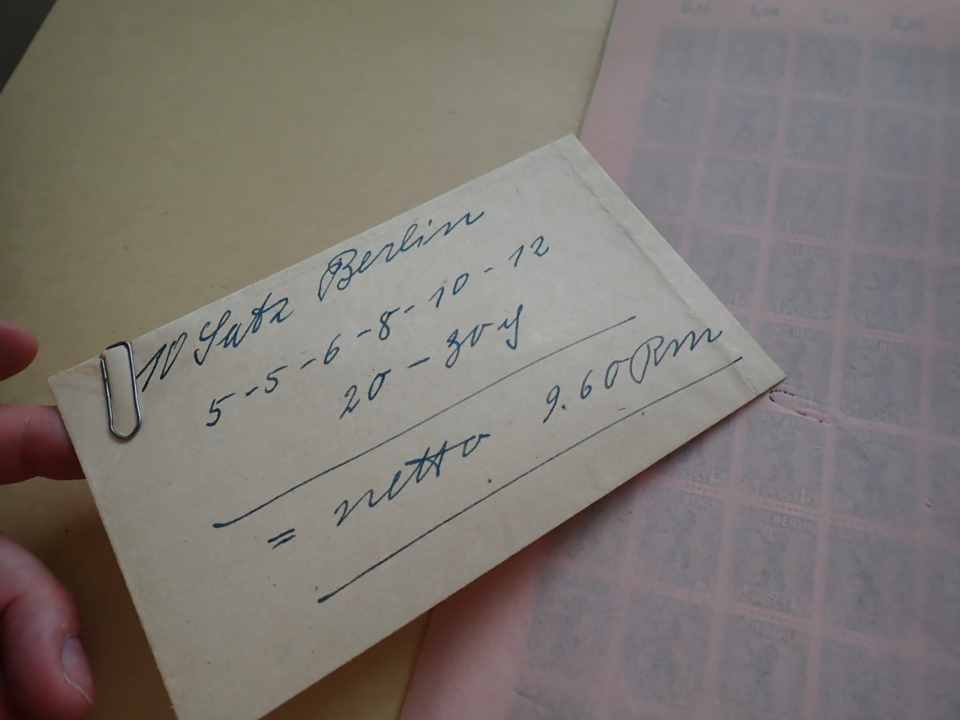 10 Satz Berlin
5-5-6-8-10-12
20-30 ₰
= netto 9.60 Rm